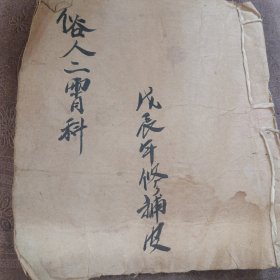 戊辰年修補皮
俗人二宵科